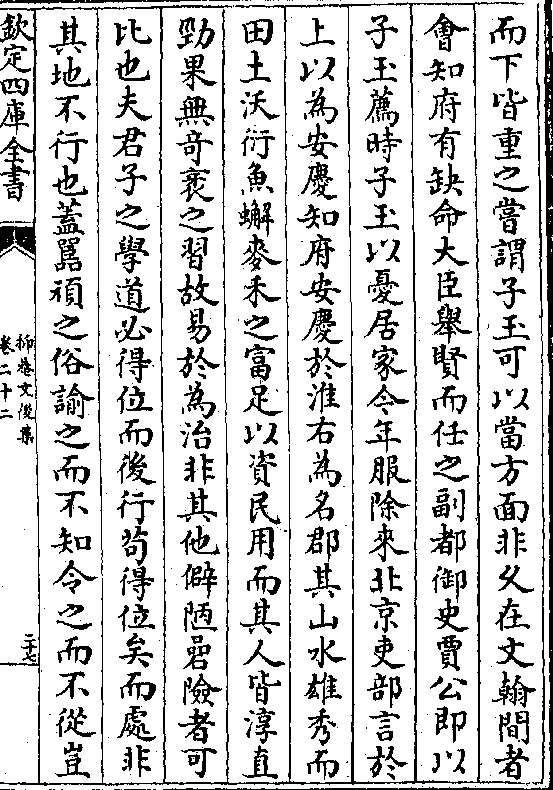 而下皆重之嘗謂子玉可以當方面非久在文翰間者
會知府有缺命大臣舉賢而任之副都御史賈公即以
子玉薦時子玉以憂居家今年服除來北京吏部言於
上以為安慶知府安慶於淮右為名郡其山水雄秀而
田土沃衍魚蠏麥禾之富足以資民用而其人皆淳直
勁果無奇衺之習故易於為治非其他僻陋磽險者可
比也夫君子之學道必得位而後行苟得位矣而處非
其地不行也蓋嚚頑之俗諭之而不知令之而不從豈
欽定四庫全書
抑菴文後集
卷二十二
二十七